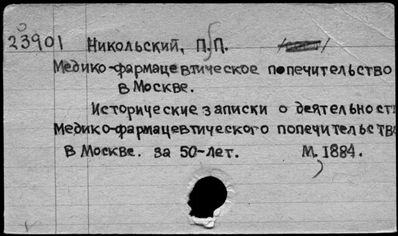 23901 Никольский, П.П.
Медико-фармацевтическое попечительство
в Москве.
Исторические записки о деятельност
Медико-фармацевтического попечительств
в Москве. за 50-лет. М. 1884.